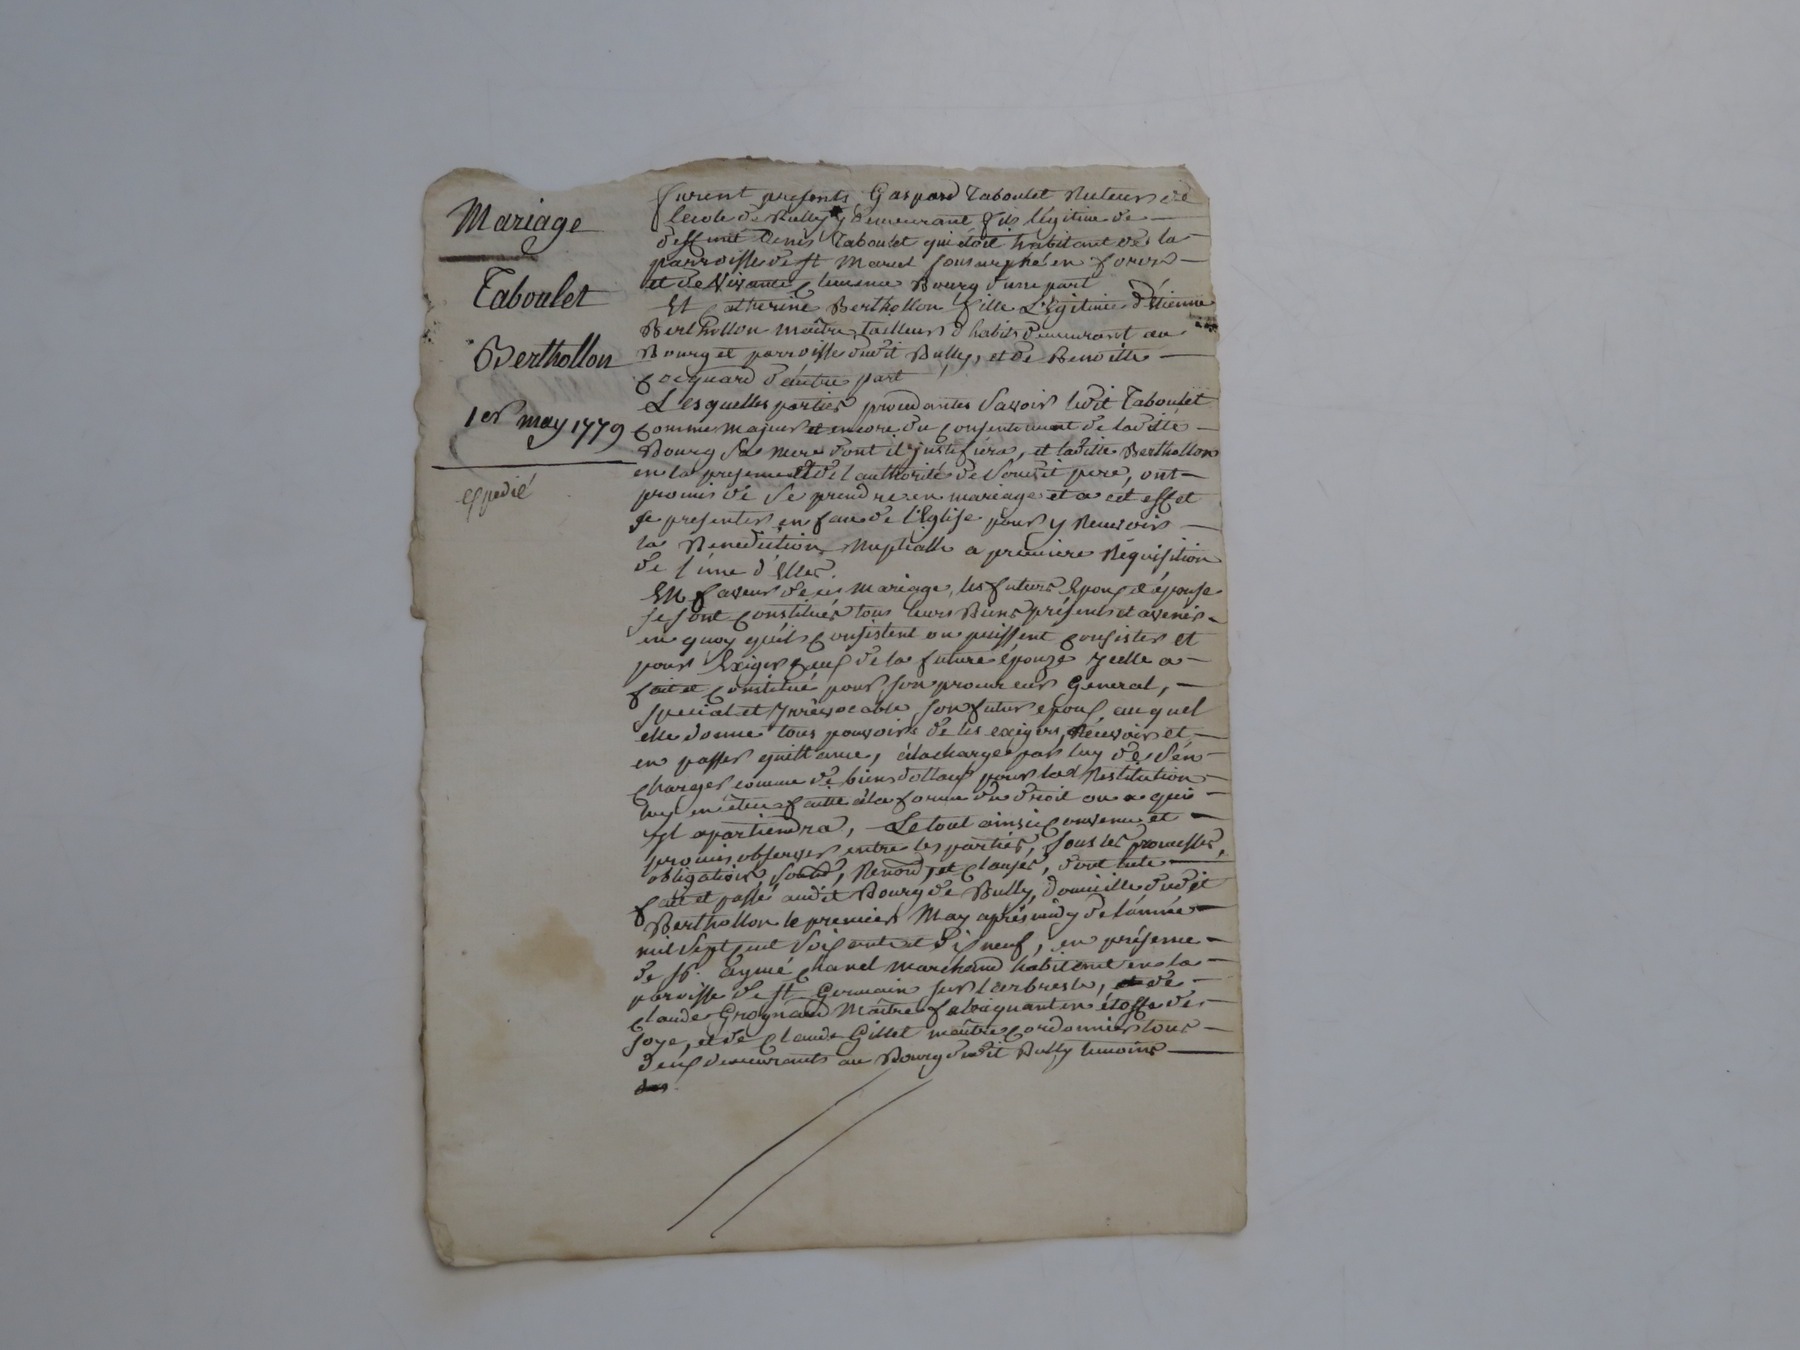 Mariage
Taboulet
Berthollon
1er may 1779
expedié
furent presents Gaspard Taboulet Recteur de
l'ecole de Bully y demeurant fils légitime de
deffunt Denis Taboulet qui étoit habitant de la
parroisse de st Marcel sous urphé en forès
et de vivante Clemence Bourg d'une part
Et Catherine Berthollon fille Légitime d'Etienne
Berthollon maître tailleur d'habits demeurant au
Bourg et parroisse dudit Bully, et de Benoitte
Cocquard d'autre part
Lesquelles parties procedantes Savoir ledit Taboulet
comme majeur et encore du consentement de laditte
Bourg Sa mere dont il justifiera, et laditte Berthollon
en la presence et de l'authorité de Sondit pere, ont
promis de se prendre en mariage et a cet effet
se presenter en face de l'Eglise pour y Recevoir
la Benediction Nuptialle a premiere Réquisition
de l'une d'Elles.
EN faveur de ce mariage, les futurs Epoux et épouse
se sont constitués tous leurs Biens présents et avenir
en quoy qu'ils consistent ou puissent consister et
pour Exiger ceux de la future épouze ycelle a
fait et constitué pour son procureur General,
special et yrrévocable son futur epoux auquel
elle donne tous pouvoirs de les exiger, Récevoir et
en passer quittance, à la charge par luy de s'en
charger comme de biens dottaux pour la Restitution
luy en être faitte à la forme du droit ou a qui
yl apartiendra, Le tout ainsi convenu et
promis observer entre les parties, sous les promesses,
obligations, soumd, Renond, et clauses, dont acte
fait et passé audit Bourg de Bully, domicille dudit
Berthollon le premier May après midy de l'année
mil sept cent soixante et dix neuf, en présence
de sr. Aymé Chanel marchand habitant en la
paroisse de st Germain sur l'arbresle, de
Claude Grognard Maître fabriquant en étoffe de
soye, et de Claude Gillet maître cordonnier tous
deux demeurants au Bourg dudit Bully temoins